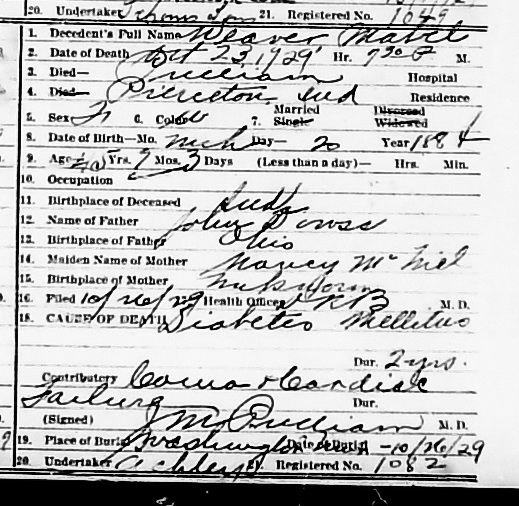 20. Undertaker 21. Registered No. 1049
1. Decedent's Full Name Weaver Mabel
2. Date of Death Oct 23, 1929 Hr. 730 P M.
3. Died— Pulliam Hospital
4. Died— Pierceton Ind Residence
5. Sex F 6. Color W 7. Married Single Divorced Widowed
8. Date of Birth—Mo. Mch Day— 20 Year 1884
9. Age 45 Yrs. 7 Mos. 3 Days (Less than a day)— Hrs. Min.
10. Occupation
11. Birthplace of Deceased Ind
12. Name of Father John
13. Birthplace of Father Ohio
14. Maiden Name of Mother Nancy McNiel
15. Birthplace of Mother Unknown
16. Filed 10/26/29 Health Officer M. D.
18. CAUSE OF DEATH Diabetes Mellitus
Dur. 2 yrs.
Contributory Coma + Cardiac
Failure Dur.
(Signed) J M Pulliam M. D.
19. Place of Burial Washington Date of Burial 10/26/29
20. Undertaker 21. Registered No. 1082